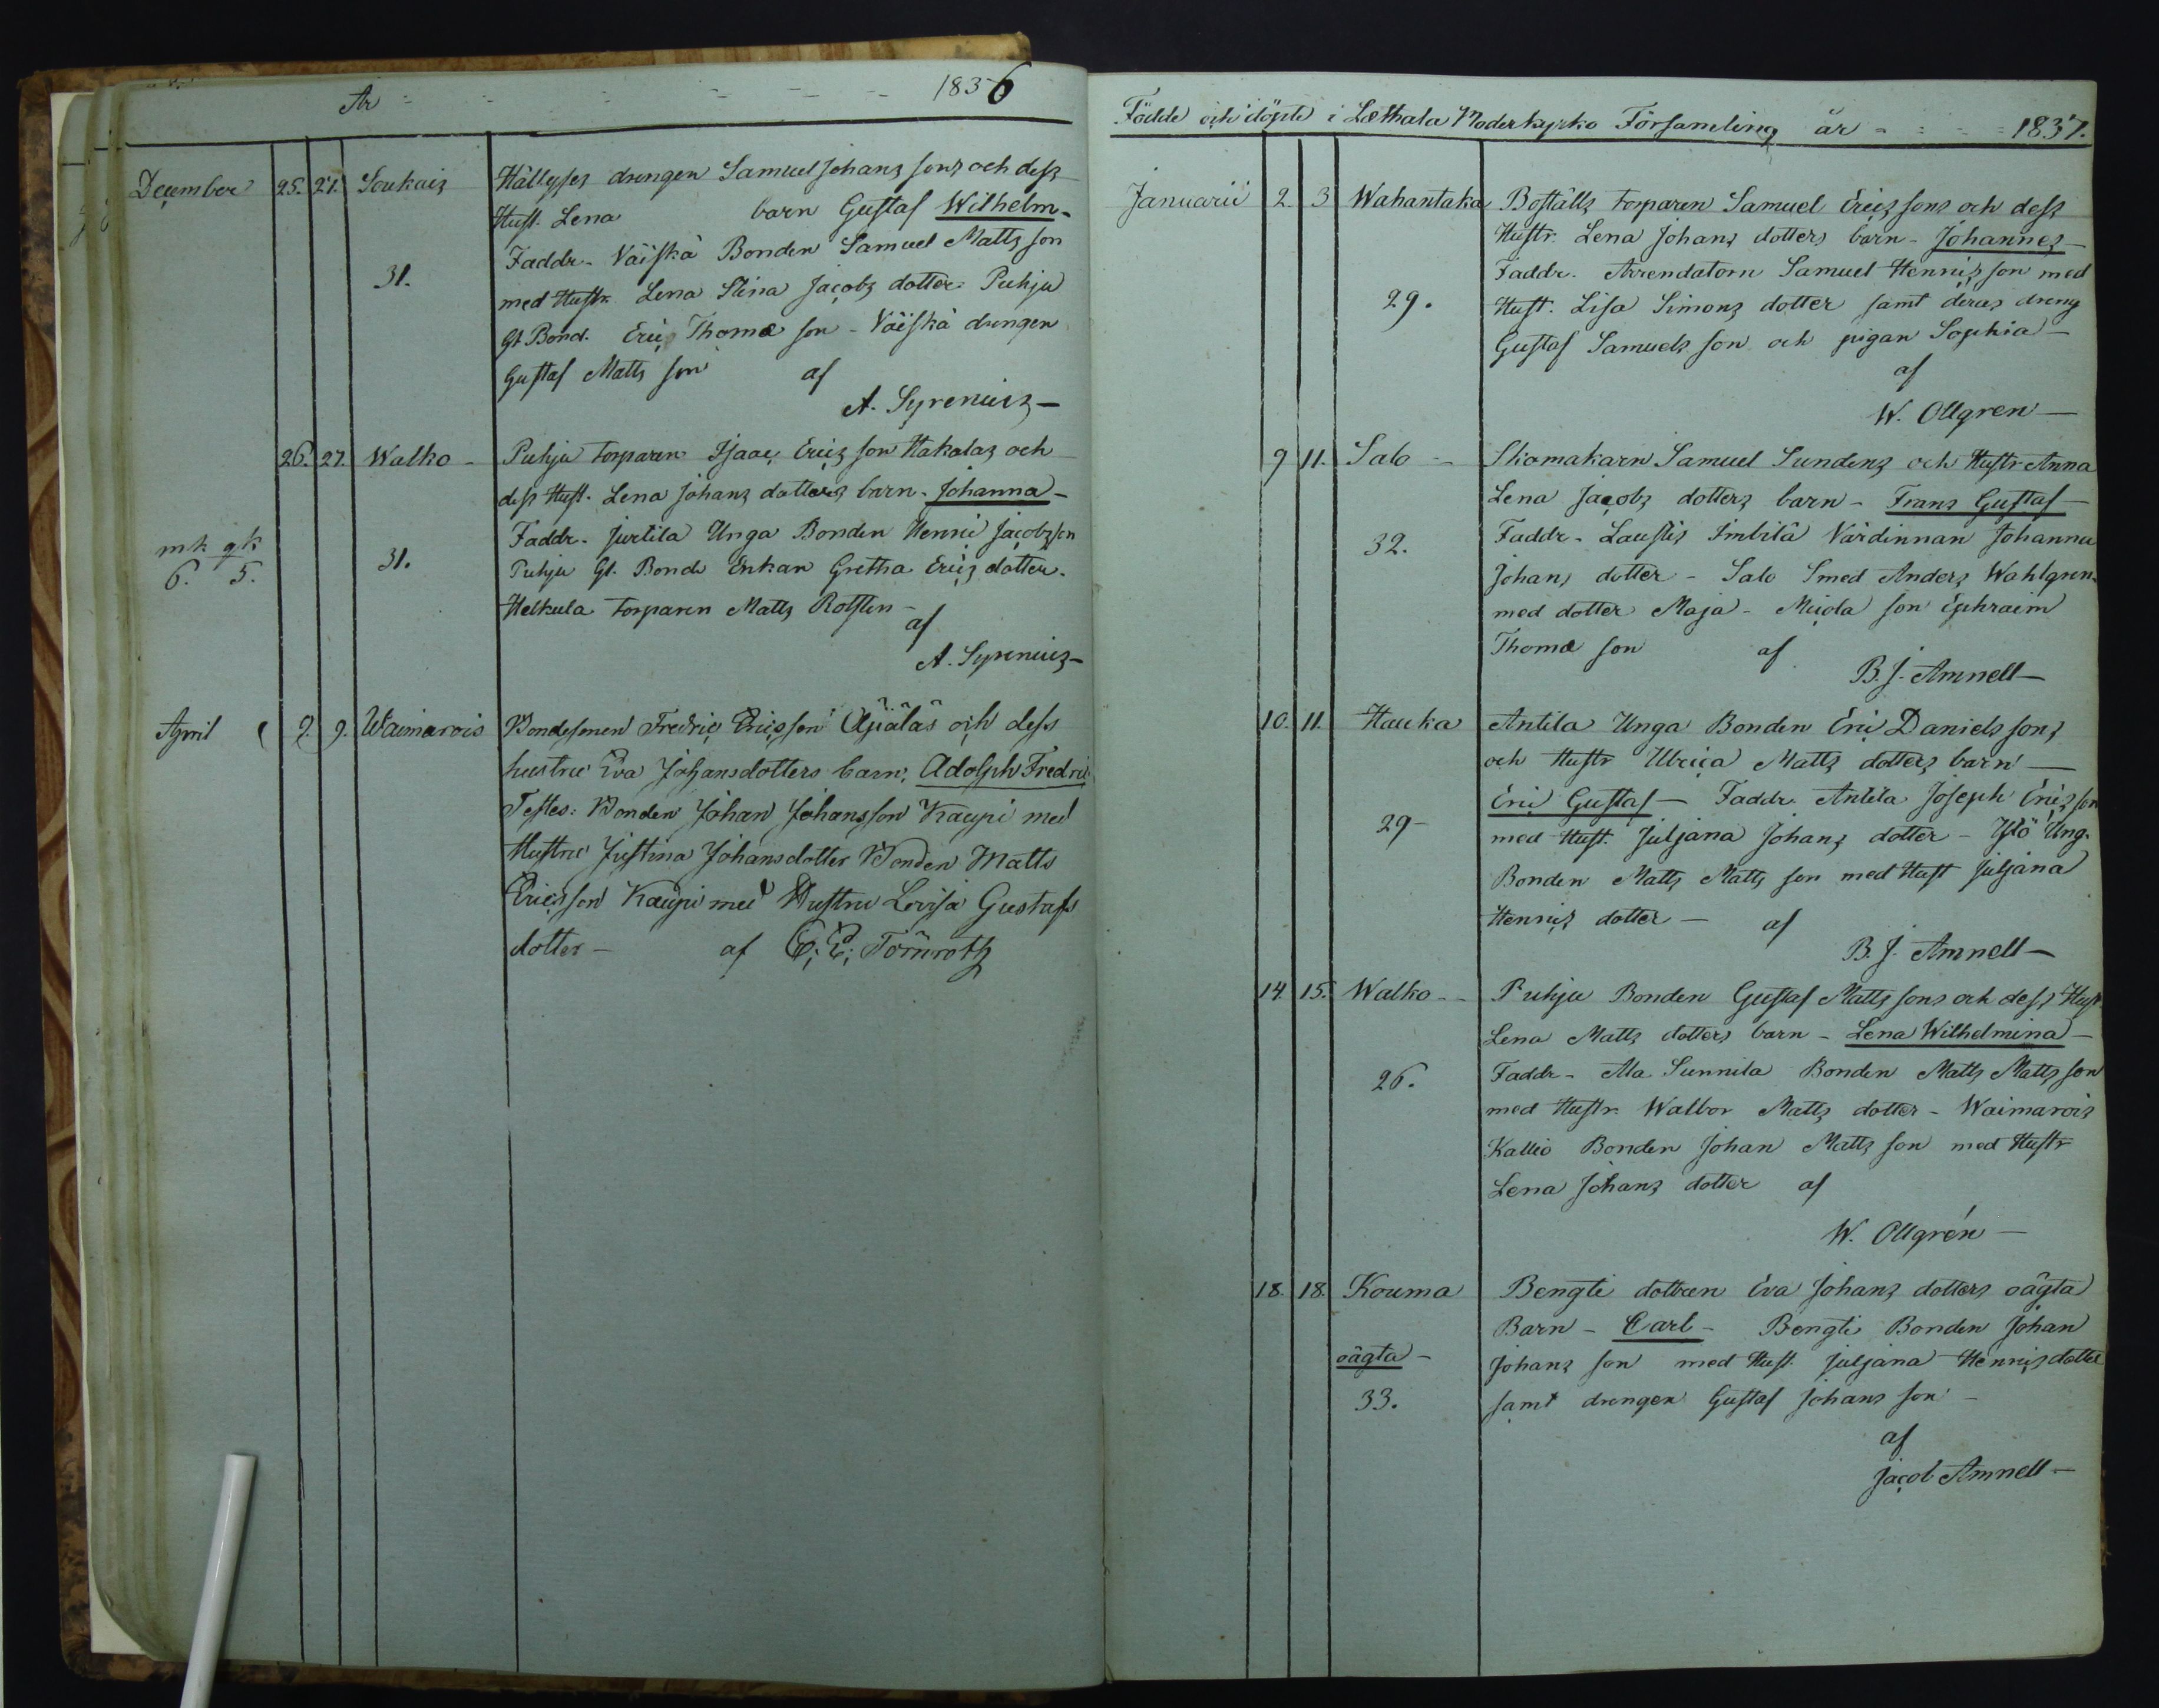 År - - - - - - 1836
December 25. 27. Soukais Hällyses drengen Samuel Johans sons och dess
Hust. Lena barn Gustaf Wilhelm -
Faddr - Väiskä Bonden Samuel Matts son
31. med Hustr. Lena Stina Jacobs dotter. Puhju
Gl. Bond. Eric Thomæ son - Väiskä drengen
Gustaf Matts son af
A. Syrenius -
26. 27. Walko - Puhju torparen Isaac Erics son Hakalas och
dess Hust. Lena Johans dotters barn - Johanna -
Faddr - Jurtila Unga Bonden Henric Jacobsson
mk qk
6. 5.
31. Puhju Gl. Bonde Enkan Gretha Erics dotter.
Helkula torparen Matts Rotsten -
af
A. Syrenius -
April 9. 9. Waimarois Bondesonen Fredric Ericsson Äjäläs och dess
hustru Eva Johansdotters barn, Adolph Fredric
Testes: Bonden Johan Johansson Kaupi med
Hustru Justina Johansdotter Bonden Matts
Ericsson Kaupi med Hustru Lovisa Gustafs
dotter - af C. E. Törnroth
Födde och döpte i Lethala Moderkyrko Församling år - - - 1837.
Januarii 2. 3 Wahantaka Boställs torparen Samuel Erics sons och dess
Hustr. Lena Johans dotters barn - Johannes -
Faddr. Arrendatorn Samuel Henrics son med
29. Hust. Lisa Simons dotter samt deras dreng
Gustaf Samuels son och pigan Sophia -
af
W. Ollgren -
9 11. Salo - Skomakarn Samuel Sundens och Hustr Anna
Lena Jacobs dotters barn - Frans Gustaf -
32. Faddr - Laustis Imbilä Värdinnan Johanna
Johans dotter - Salo Smed Anders Wahlgren
med dotter Maja - Micola son Ephraim
Thomæ son af
B. J. Amnell -
10. 11. Hauka Antila Unga Bonden Eric Daniels sons
och Hustr Ulrica Matts dotters barn -
Eric Gustaf - Faddr Antila Joseph Erics son
29 - med Hust. Juljana Johans dotter - Ylö Ung.
Bonden Matts Matts son med Hust Juljana
Henrics dotter - af
B. J. Amnell -
14 15. Walko - - Puhju Bonden Gustaf Matts sons och dess Hust
Lena Matts dotters barn - Lena Wilhelmina -
26. Faddr - Ala Sunnila Bonden Matts Matts son
med Hustr. Walbor Matts dotter - Waimarois
Kallio Bonden Johan Matts son med Hustr
Lena Johans dotter af
W. Ollgrén -
18. 18. Kouma Bengti dottren Eva Johans dotters oägta
Barn - Carl - Bengti Bonden Johan
oägta - Johans son med Hust. Juljana Henrics dotter
33. samt drengen Gustaf Johans son -
af
Jacob Amnell -